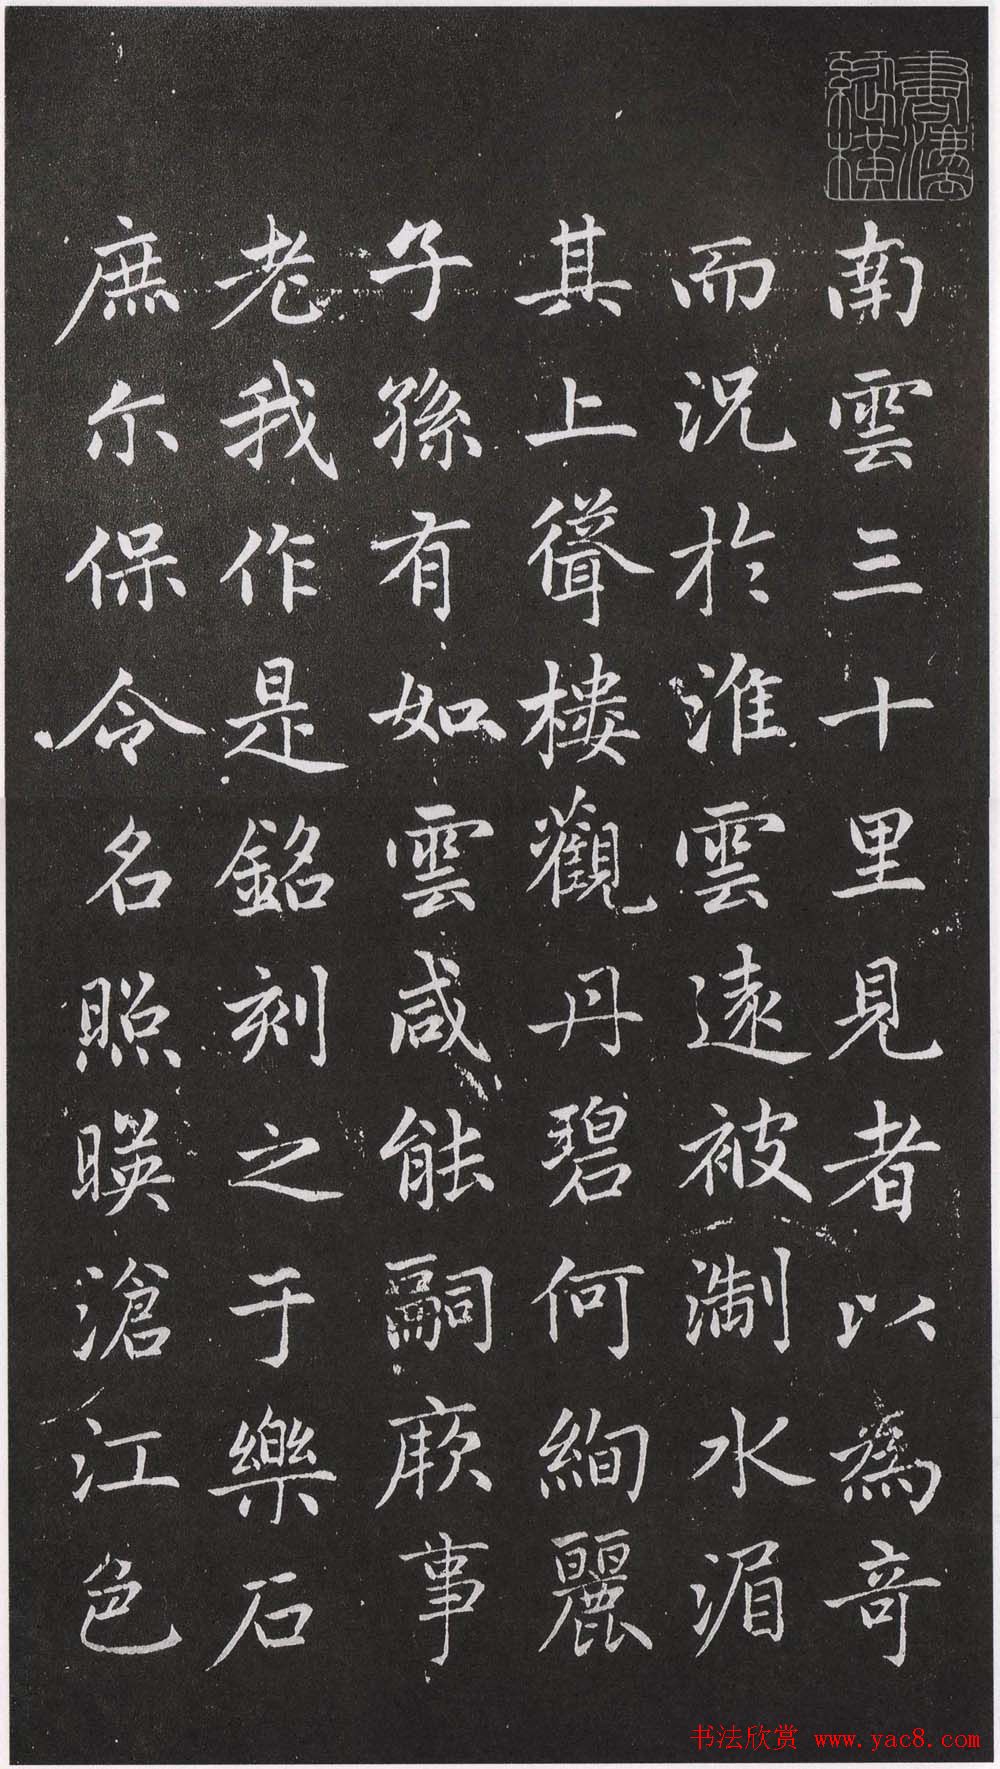 南雲三十里見者以為奇
而況於淮雲遠被淛水湄
其上聳樓觀丹碧何絢麗
子孫有如雲咸能嗣厥事
老我作是銘刻之于樂石
庶尓保令名照暎滄江色
书法欣赏 www.yac8.com